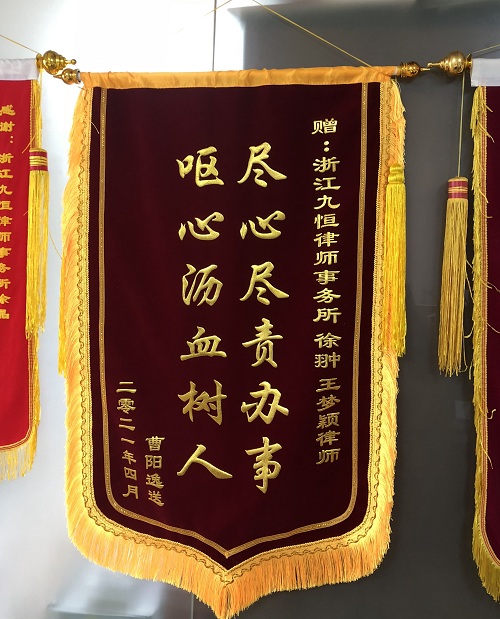 赠：浙江九恒律师事务所 徐翀 王梦颖律师
尽心尽责办事
呕心沥血树人
曹阳逸送
二零二一年四月
感谢：浙江九恒律师事务所徐